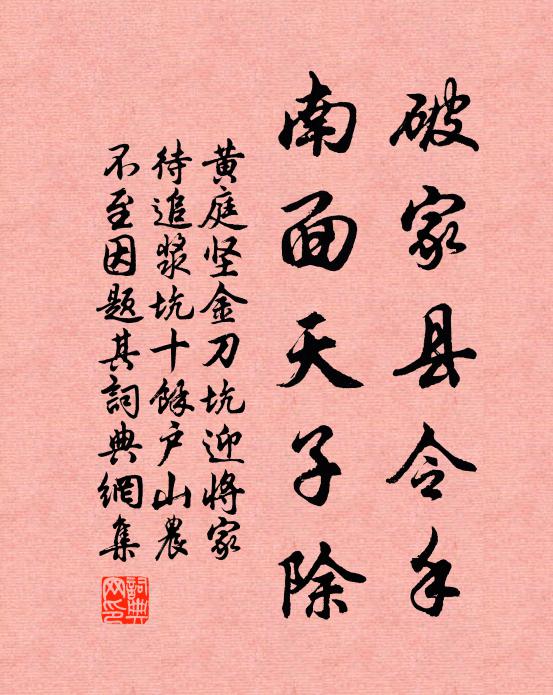 破家县令手
南面天子除
黄庭坚金刀坑迎将家
待追浆坑十馀户山农
不至因题其詞典網集
詞典
网印